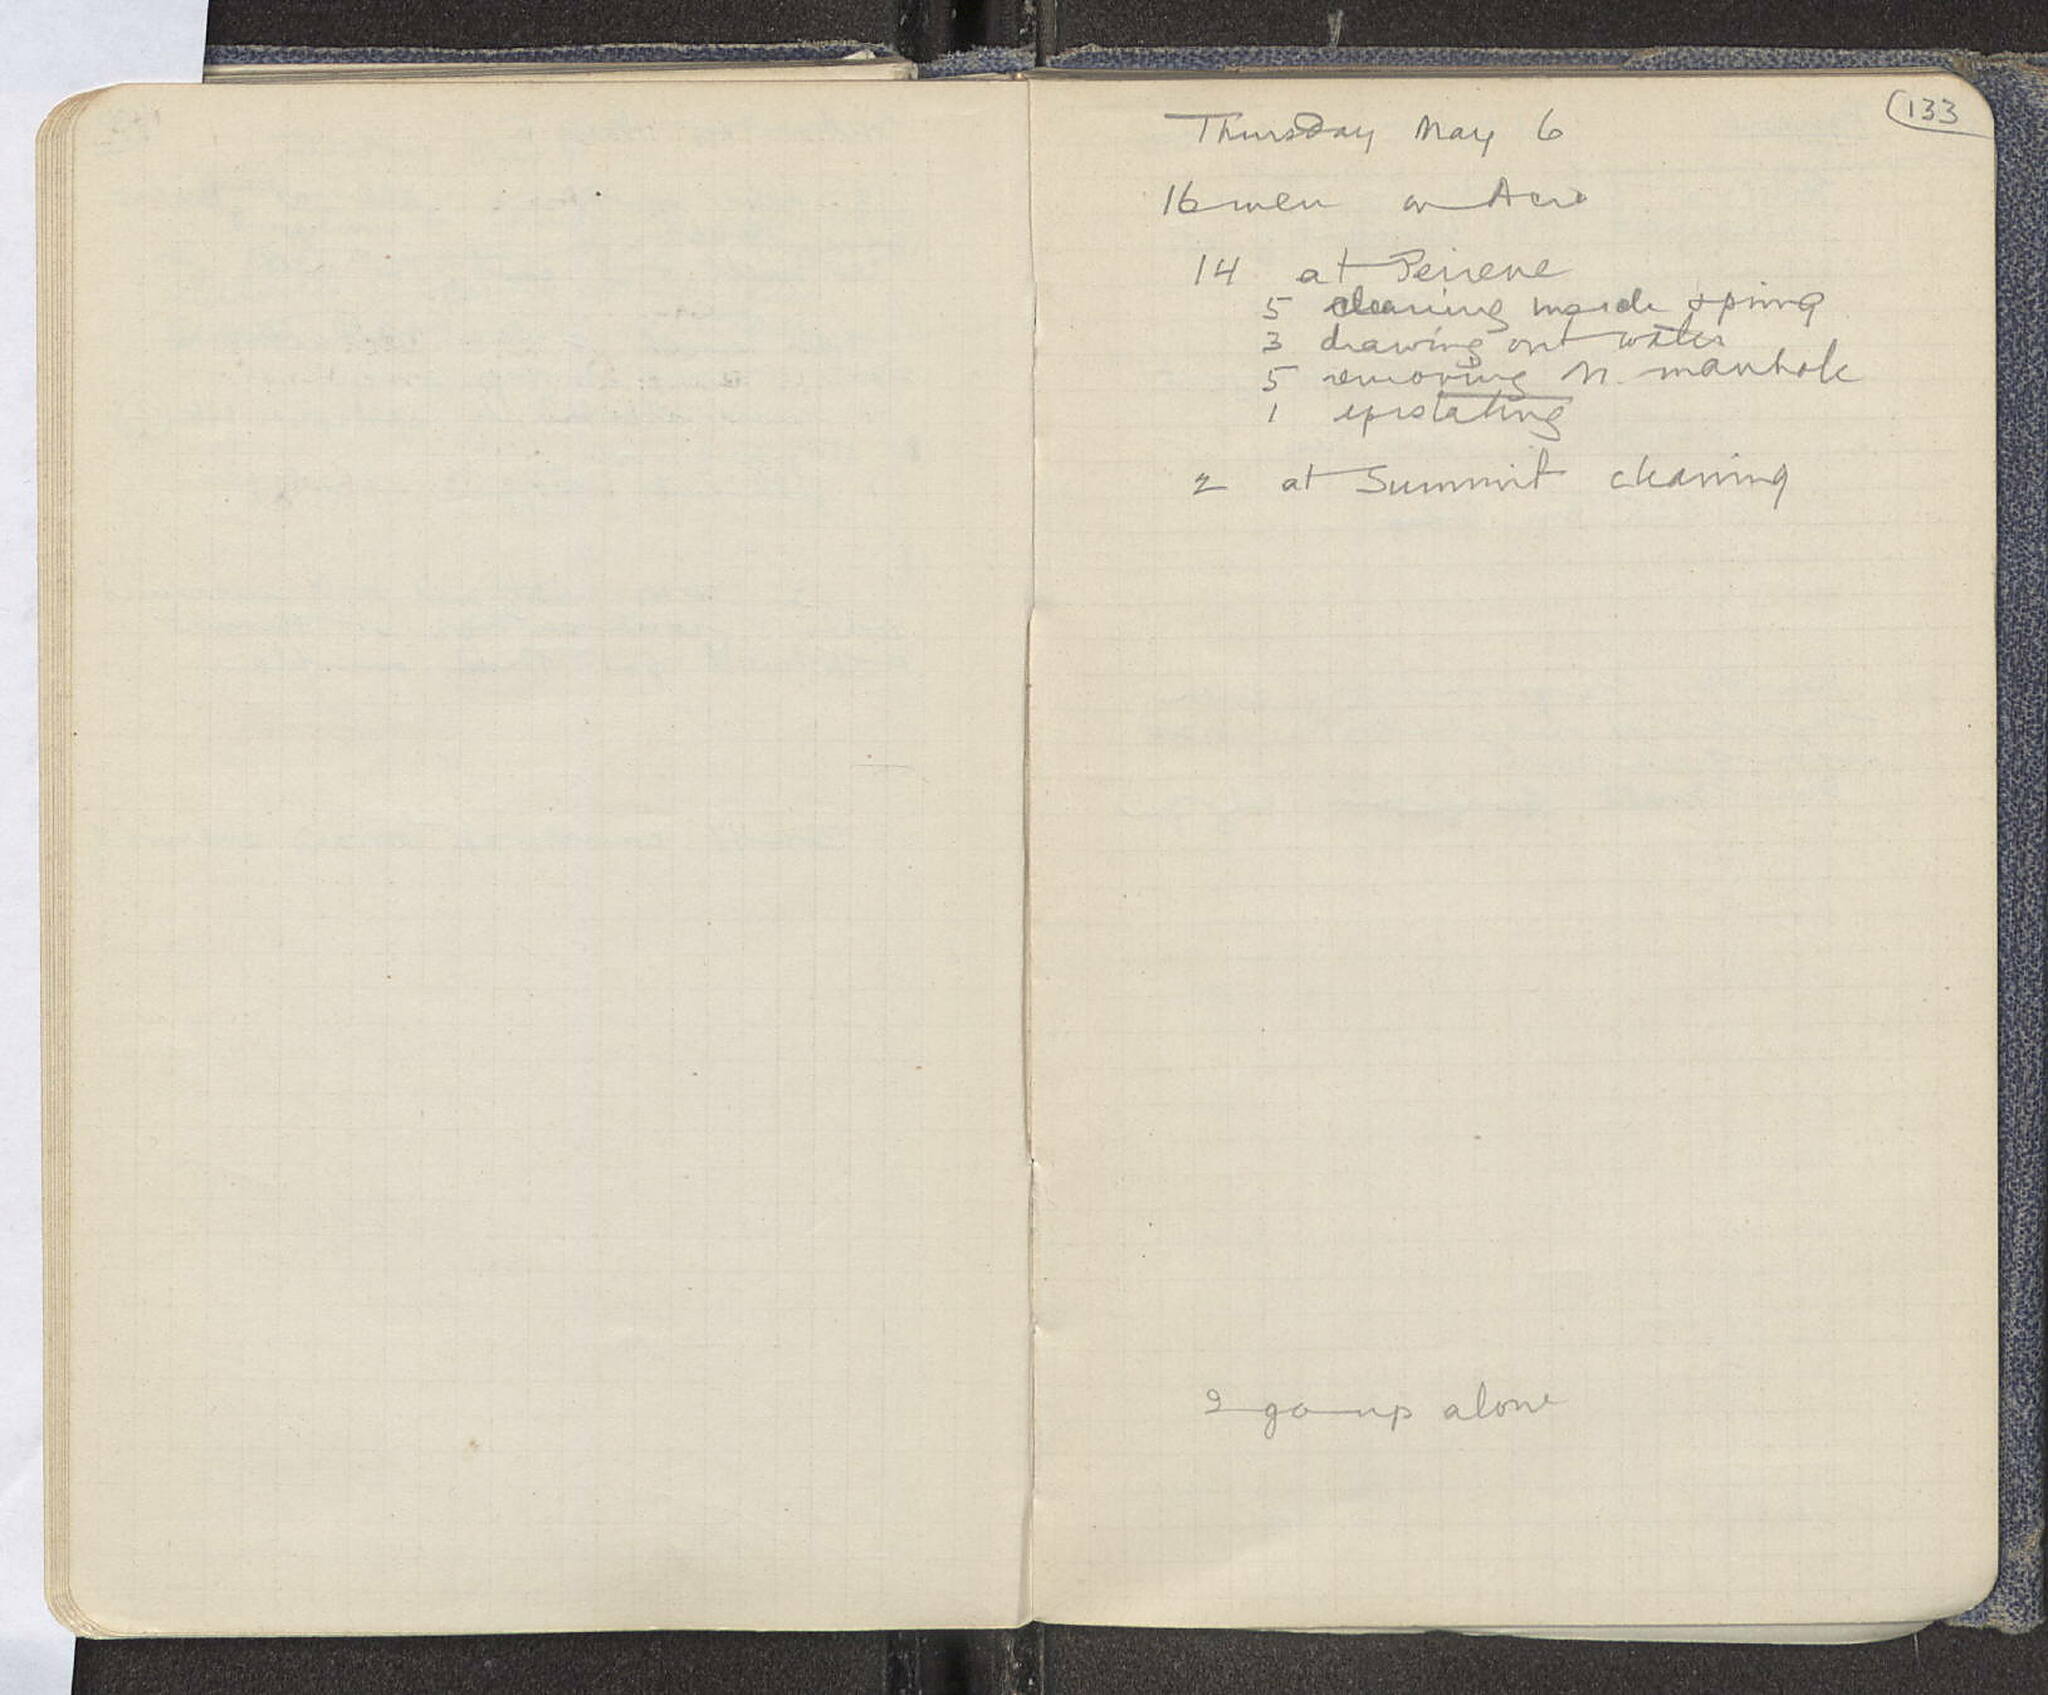 133
Thursday May 6
16 men on Acro
14 at Peirene
5 cleaning inside spring
3 drawing out water
5 removing N. manhole
1 epistating
2 at Summit cleaning
I go up alone